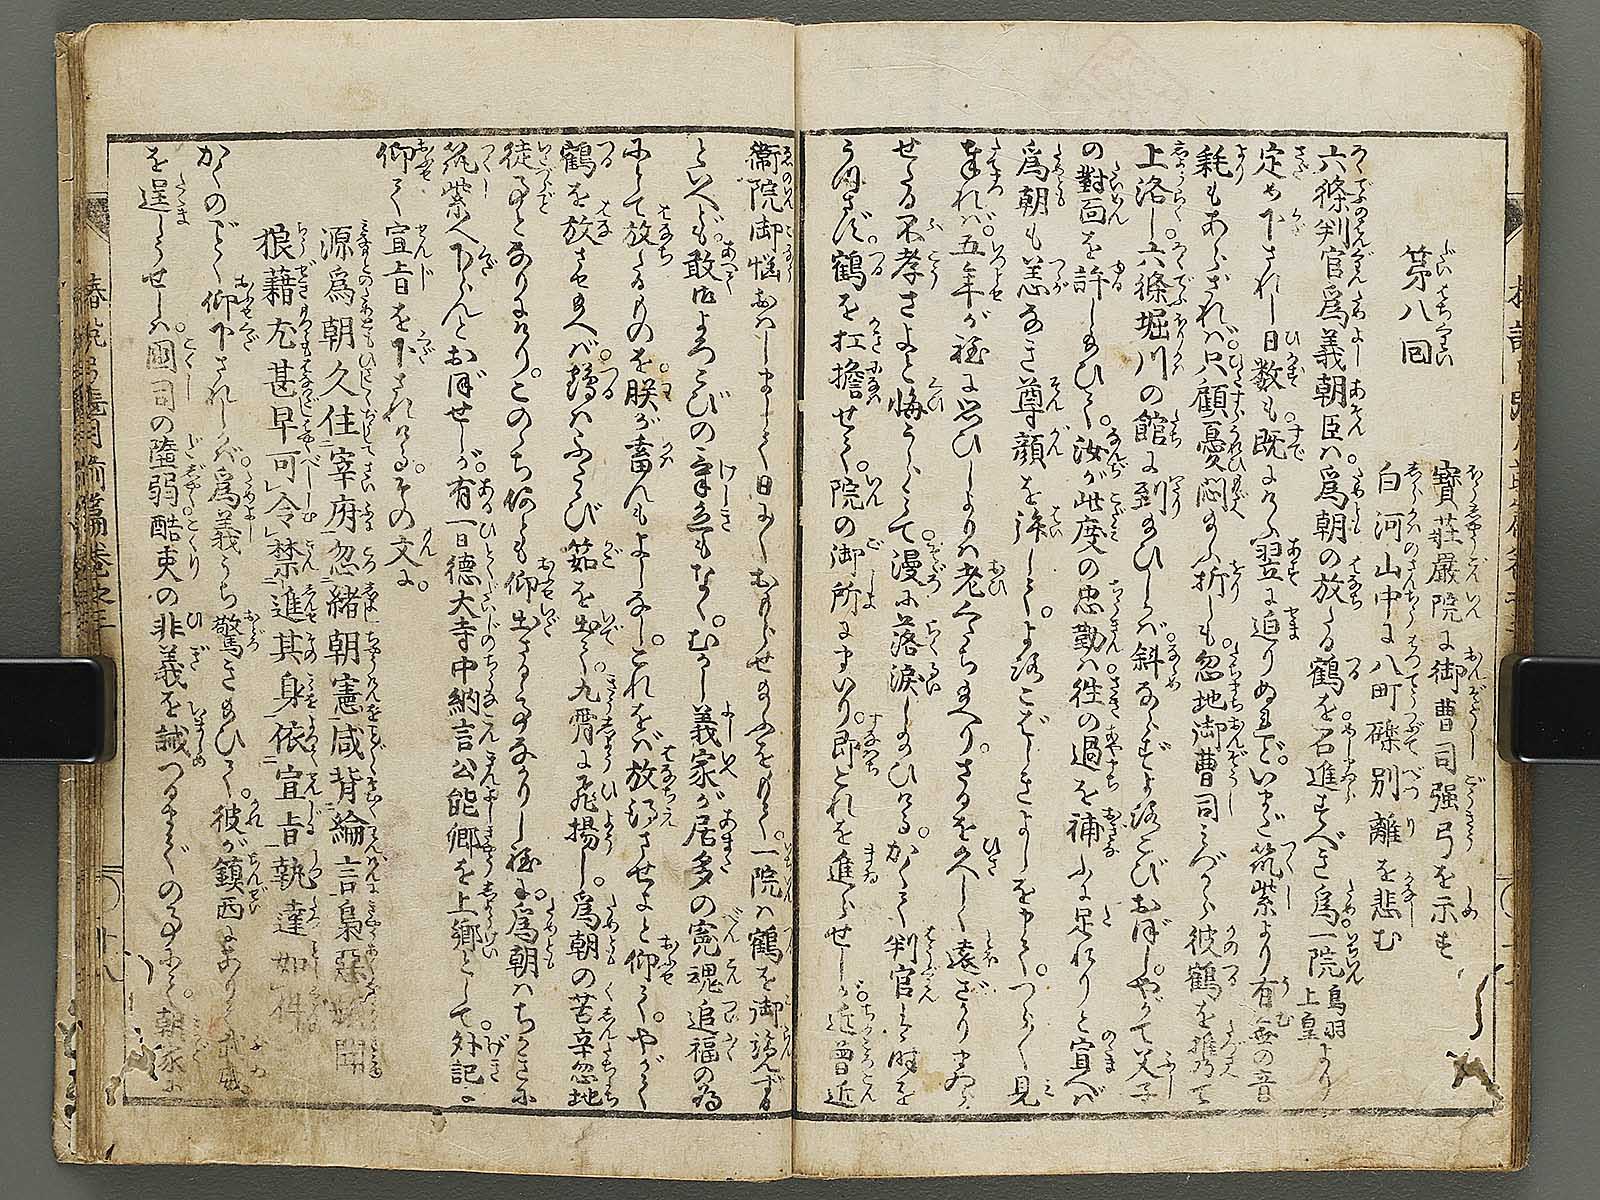 第八回
寶莊嚴院に御曹司強弓を示す
白河山中に八町礫別離を悲む
六條判官爲義朝臣は爲朝の放たる鶴を召進すべき爲一院鳥羽上皇より
定め下されし日数も既にけふ翌に迫りぬれど。いまだ筑紫より有無の音
耗もあらざれば。只顧憂悶まふ折しも。忽地御曹司みづから彼鶴を携て
上洛し。六條堀川の館に到給ひしかば。斜ならずよろこびおぼし。やがて父子
の對面を許し給ひて。汝が此度の忠勤は徃の過を補ふに足れりと宣へば
爲朝も恙なき尊顔を拜して。よろこばしきよしをまうして。つらつら見
奉れば。五年が程に思ひしよりは老くだち給へり。さるを久しく遠ざかりまゐら
せたる不孝さよと悔うらみて。漫に落涙し給ひける。かくて判官は時を
うつさず。鶴を扛擔せて。院の御所にまいり。即これを進らせしに。近曽近
衞院御悩おはしまして日にく おもらせ給ふをもて。一院は鶴を御覧ずる
といへども。敢よろこびの氣色もなく。むかし義家が居多の寃魂追福の為
にとて放たるものを朕が畜んもよしなし。これをば放得させよと仰て。やがて
鶴を放させ給へば。鶴はふたたび籠を出て。九霄に飛揚し。爲朝の苦辛忽地
徒事となりにけり。このゝち何とも仰出さるゝ事なかりし程に。爲朝はちかきに
筑紫へ下らんとおぼせしが。有一日德大寺中納言公能卿を上卿として。外記に
仰て宣旨を下されける。その文に。
源爲朝久住宰府忽緒朝憲咸背綸言梟惡頻聞
狼藉尤甚早可令禁進其身依宣旨執達如件
かくのごとく仰下されしかば。爲義うち驚き給ひて。彼が鎭西にありて武威
を逞しうせしは。國司の墮弱酷吏の非義を誡つるまでの事にて。朝家に
椿説弓張月前篇卷之三
十八